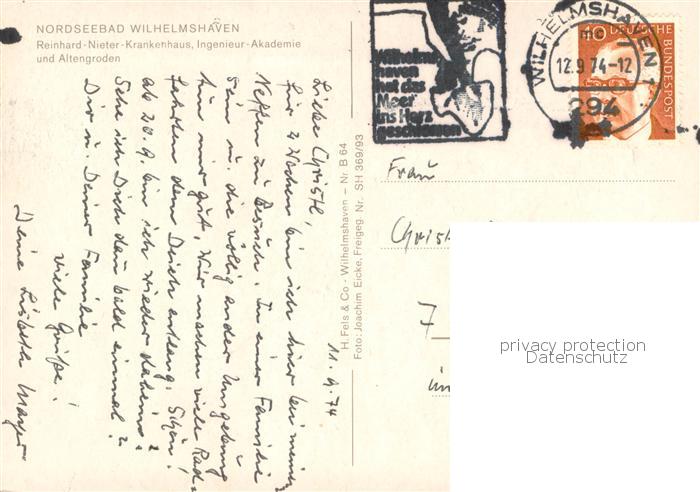 NORDSEEBAD WILHELMSHAVEN
Reinhard-Nieter-Krankenhaus, Ingenieur-Akademie
und Altengroden
Wilhelms-
haven
hat das
Meer
ins Herz
geschlossen
WILHELMSHAVEN 1
mo
12.9.74-12
294
40
DEUTSCHE
BUNDESPOST
11.9.74
Liebe Christl,
für 4 Wochen bin ich hier bei meinem
Neffen zu Besuch. In einer Familie
sein u. die völlig andere Umgebung
tun mir gut. Wir machen viele Rad-
fahrten dem Deich entlang. Schön!
ab 20.9. bin ich wieder daheim.
Sehe ich Dich dann bald einmal?
Dir u. Deiner Familie
viele Grüße!
Deine Lisbeth Mayer
H. Fels & Co - Wilhelmshaven - Nr. B 64
Foto: Joachim Eicke, Freigeg. Nr. SH 369/93
Frau
7
privacy protection
Datenschutz